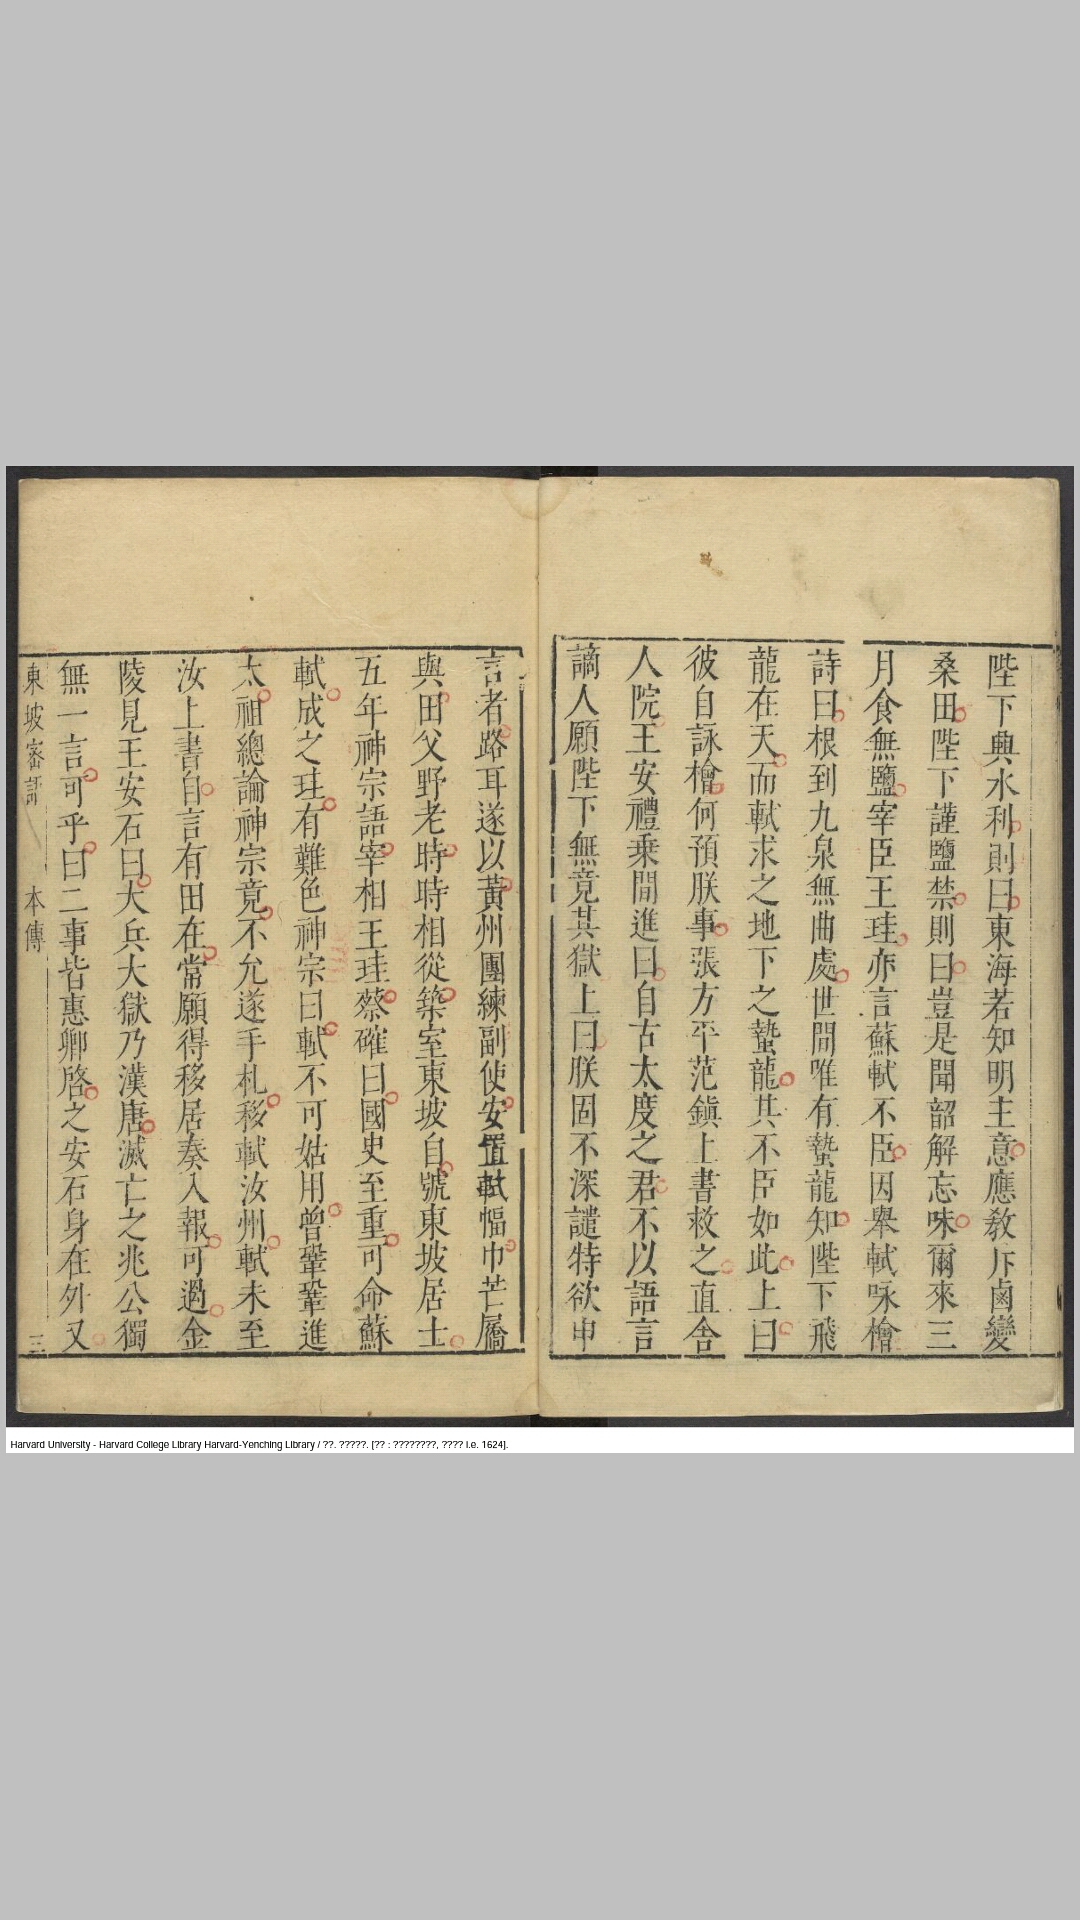 陛下興水利則曰東海若知明主意應教斥鹵變
桑田陛下謹鹽禁則曰豈是聞韶解忘味爾來三
月食無鹽宰臣王珪亦言蘇軾不臣因舉軾咏檜
詩曰根到九泉無曲處世間唯有蟄龍知陛下飛
龍在天而軾求之地下之蟄龍其不臣如此上曰
彼自詠檜何預朕事張方平范鎮上書救之直舍
人院王安禮乗間進曰自古大度之君不以語言
謫人願陛下無竟其獄上曰朕固不深譴特欲申
言者路耳遂以黃州團練副使安置軾幅巾芒屩
與田父野老時時相從築室東坡自號東坡居士
五年神宗語宰相王珪蔡確曰國史至重可命蘇
軾成之珪有難色神宗曰軾不可姑用曾鞏鞏進
太祖總論神宗竟不允遂手札移軾汝州軾未至
汝上書自言有田在常願得移居奏入報可過金
陵見王安石曰大兵大獄乃漢唐滅亡之兆公獨
無一言可乎曰二事皆惠卿啓之安石身在外又
東坡密語 本傳 三
Harvard University - Harvard College Library Harvard-Yenching Library / ??. ?????. [?? : ????????, ???? i.e. 1624].